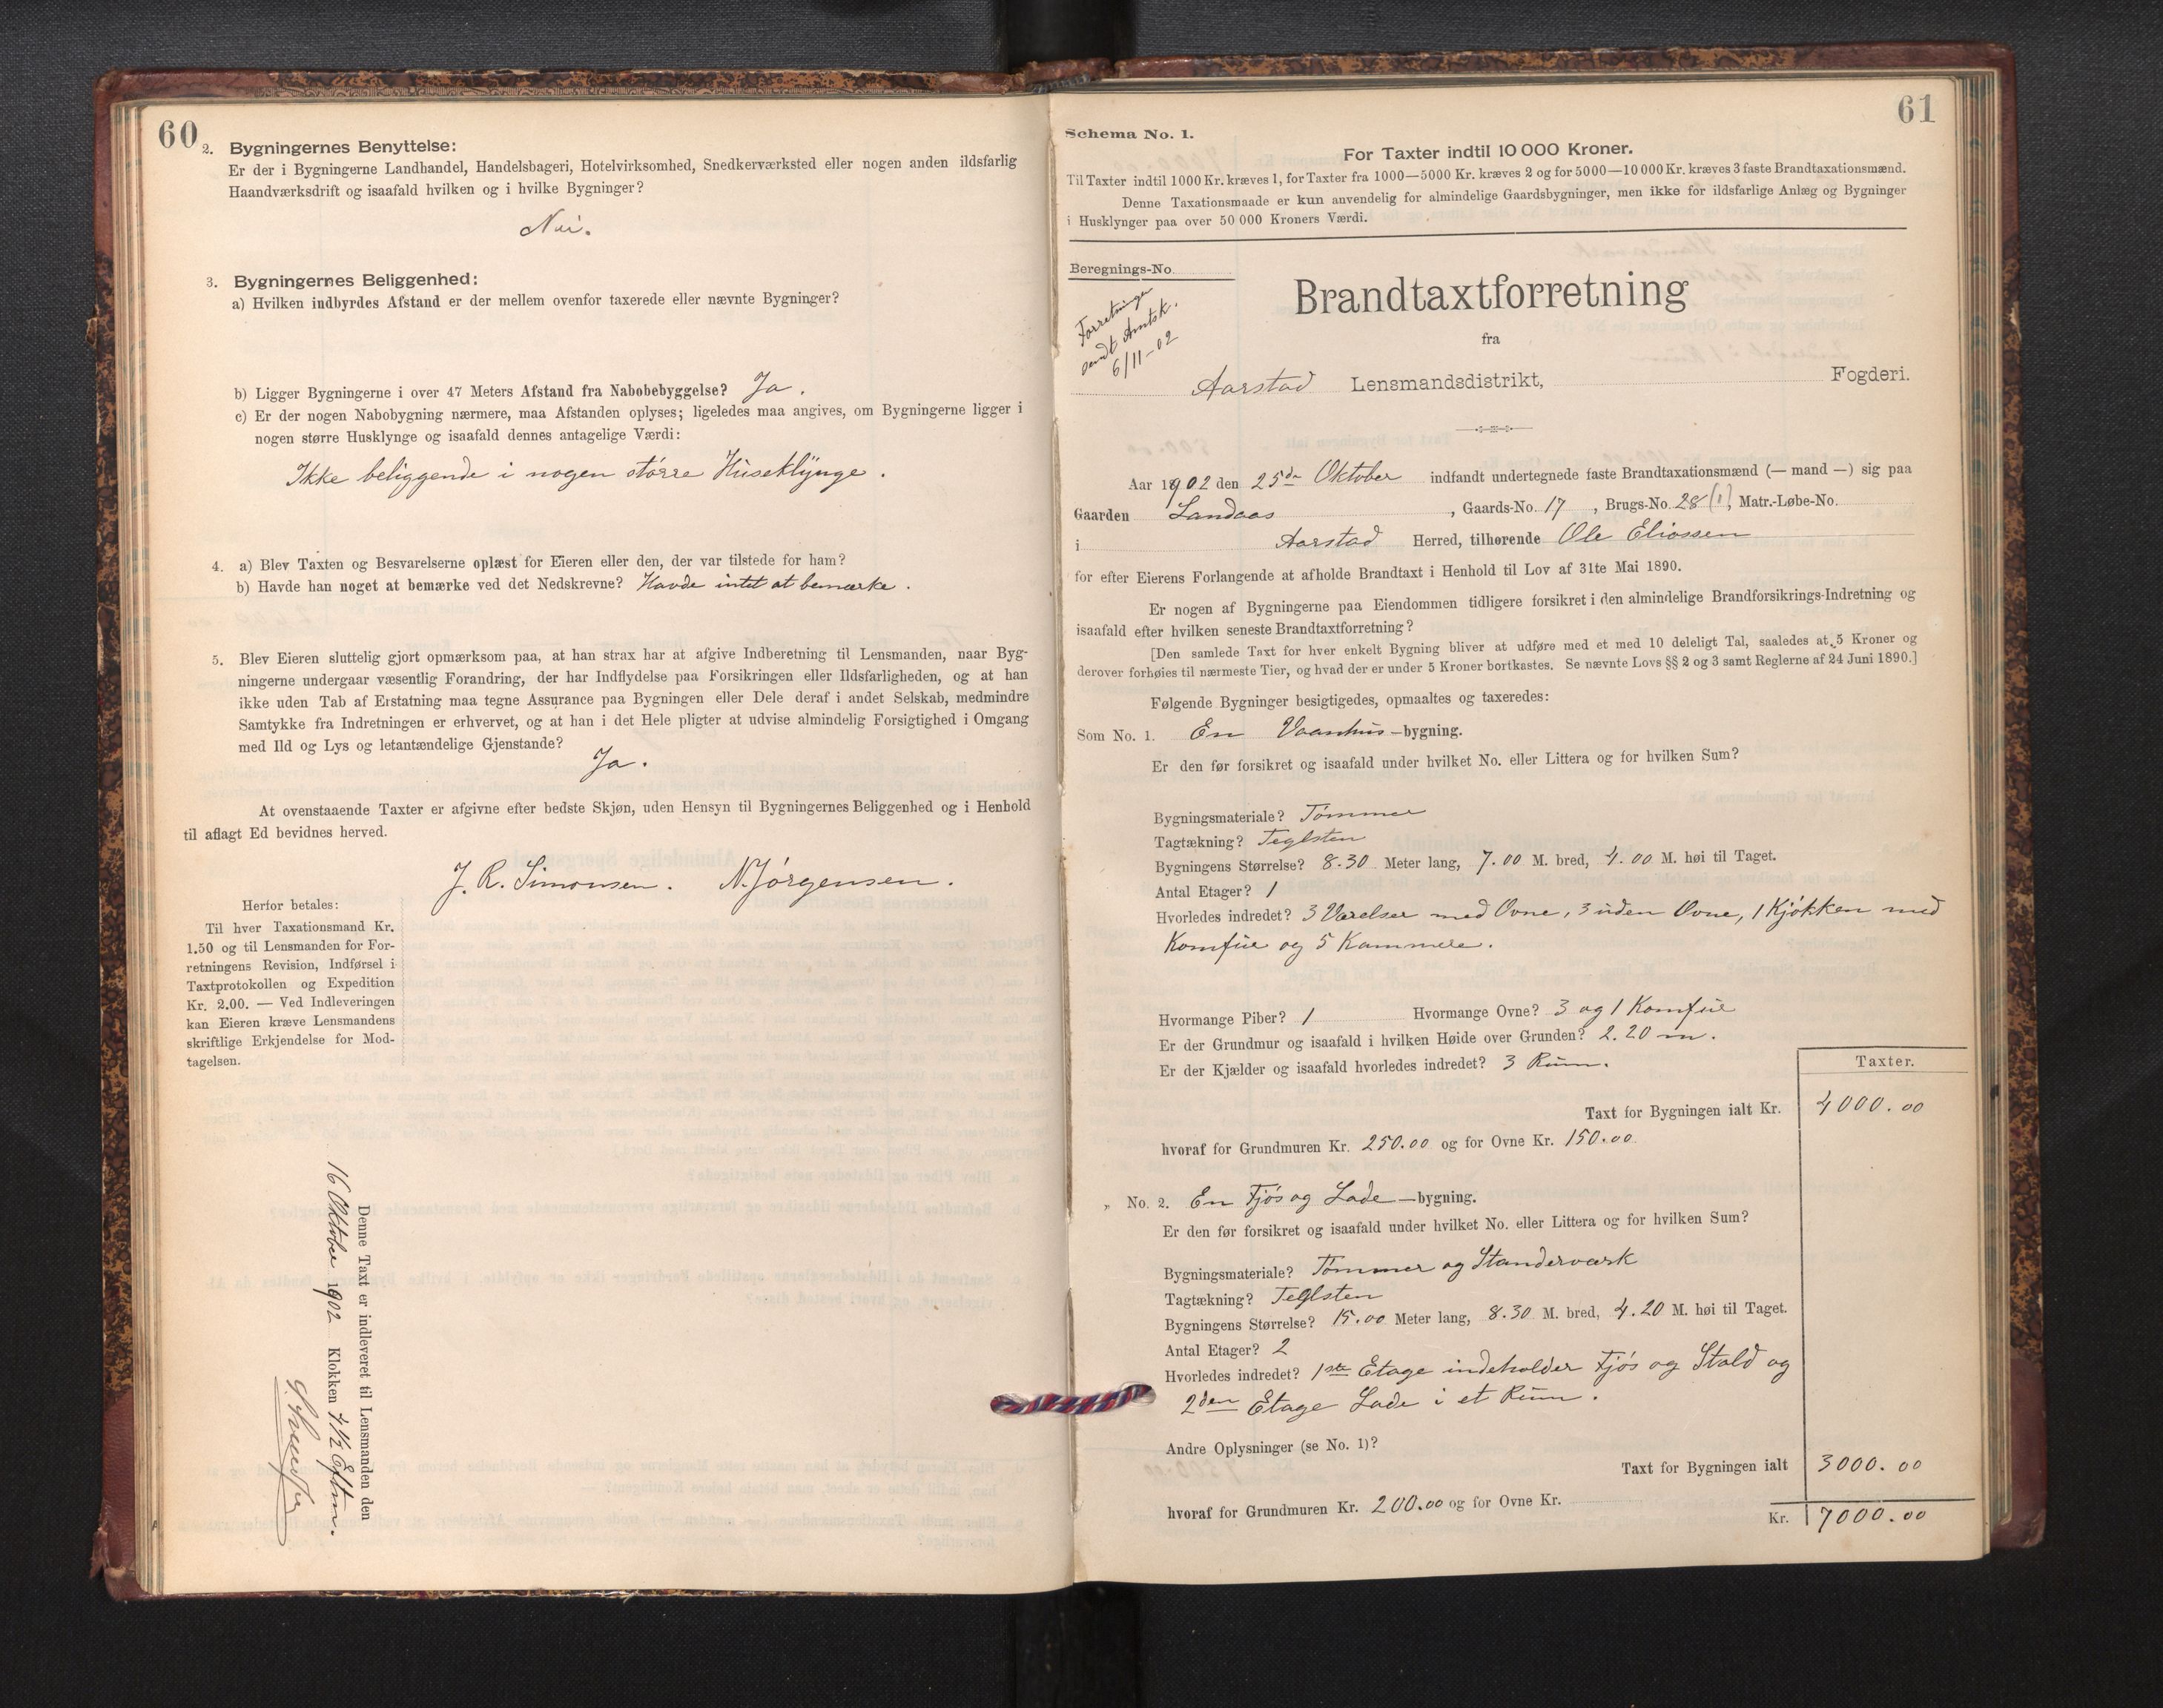 60
2. Bygningernes Benyttelse:
Er der i Bygningerne Landhandel, Handelsbageri, Hotelvirksomhed, Snedkerværksted eller nogen anden ildsfarlig
Haandværksdrift og isaafald hvilken og i hvilke Bygninger?
Nei.
3. Bygningernes Beliggenhed:
a) Hvilken indbyrdes Afstand er der mellem ovenfor taxerede eller nævnte Bygninger?
b) Ligger Bygningerne i over 47 Meters Afstand fra Nabobebyggelse? Ja.
c) Er der nogen Nabobygning nærmere, maa Afstanden oplyses; ligeledes maa angives, om Bygningerne ligger i
nogen større Husklynge og isaafald dennes antagelige Værdi:
Ikke beliggende i nogen större Huseklynge.
4. a) Blev Taxten og Besvarelserne oplæst for Eieren eller den, der var tilstede for ham?
b) Havde han noget at bemærke ved det Nedskrevne? Havde intet at bemærke.
5. Blev Eieren sluttelig gjort opmærksom paa, at han strax har at afgive Indberetning til Lensmanden, naar Byg-
ningerne undergaar væsentlig Forandring, der har Indflydelse paa Forsikringen eller Ildsfarligheden, og at han
ikke uden Tab af Erstatning maa tegne Assurance paa Bygningen eller Dele deraf i andet Selskab, medmindre
Samtykke fra Indretningen er erhvervet, og at han i det Hele pligter at udvise almindelig Forsigtighed i Omgang
med Ild og Lys og letantændelige Gjenstande?
Ja.
At ovenstaaende Taxter er afgivne efter bedste Skjøn, uden Hensyn til Bygningernes Beliggenhed og i Henhold
til aflagt Ed bevidnes herved.
J. R. Simonsen. N. Jörgensen.
Herfor betales:
Til hver Taxationsmand Kr.
1.50 og til Lensmanden for For-
retningens Revision, Indførsel i
Taxtprotokollen og Expedition
Kr. 2.00. — Ved Indleveringen
kan Eieren kræve Lensmandens
skriftlige Erkjendelse for Mod-
tagelsen.
Denne Taxt er indleveret til Lensmanden den
16 Oktober 1902 Klokken 4 1/2 Eftm.
61
Schema No. 1.
For Taxter indtil 10 000 Kroner.
Til Taxter indtil 1000 Kr. kræves 1, for Taxter fra 1000—5000 Kr. kræves 2 og for 5000—10 000 Kr. kræves 3 faste Brandtaxationsmænd.
Denne Taxationsmaade er kun anvendelig for almindelige Gaardsbygninger, men ikke for ildsfarlige Anlæg og Bygninger
i Husklynger paa over 50 000 Kroners Værdi.
Beregnings-No.
Forretningen
sendt Amtsk.
6/11-02
Brandtaxtforretning
fra
Aarstad Lensmandsdistrikt, Fogderi.
Aar 1902 den 25de Oktober indfandt undertegnede faste Brandtaxationsmænd (— mand —) sig paa
Gaarden Landaas, Gaards-No. 17, Brugs-No. 28 (1), Matr.-Løbe-No.
i Aarstad Herred, tilhørende Ole Eliassen
for efter Eierens Forlangende at afholde Brandtaxt i Henhold til Lov af 31te Mai 1890.
Er nogen af Bygningerne paa Eiendommen tidligere forsikret i den almindelige Brandforsikrings-Indretning og
isaafald efter hvilken seneste Brandtaxtforretning?
[Den samlede Taxt for hver enkelt Bygning bliver at udføre med et med 10 deleligt Tal, saaledes at 5 Kroner og
derover forhøies til nærmeste Tier, og hvad der er under 5 Kroner bortkastes. Se nævnte Lovs §§ 2 og 3 samt Reglerne af 24 Juni 1890.]
Følgende Bygninger besigtigedes, opmaaltes og taxeredes:
Som No. 1. En Vaanhus-bygning.
Er den før forsikret og isaafald under hvilket No. eller Littera og for hvilken Sum?
Bygningsmateriale? Tömmer
Tagtækning? Teglsten
Bygningens Størrelse? 8.30 Meter lang, 7.00 M. bred, 4.00 M. høi til Taget.
Antal Etager? 1
Hvorledes indredet? 3 Værelser med Ovne, 3 uden Ovne, 1 Kjökken med
Komfür og 5 Kammere.
Hvormange Piber? 1 Hvormange Ovne? 3 og 1 Komfür
Er der Grundmur og isaafald i hvilken Høide over Grunden? 2.20 m.
Er der Kjælder og isaafald hvorledes indredet? 3 Rum.
Taxter.
Taxt for Bygningen ialt Kr. 4000.00
hvoraf for Grundmuren Kr. 250.00 og for Ovne Kr. 150.00
„ No. 2. En Fjös og Lade-bygning.
Er den før forsikret og isaafald under hvilket No. eller Littera og for hvilken Sum?
Bygningsmateriale? Tömmer og Standerværk
Tagtækning? Teglsten
Bygningens Størrelse? 15.00 Meter lang, 8.30 M. bred, 4.20 M. høi til Taget.
Antal Etager? 2
Hvorledes indredet? 1ste Etage indeholder Fjös og Stald og
2den Etage Lade i et Rum.
Andre Oplysninger (se No. 1)?
Taxt for Bygningen ialt 3000.00
hvoraf for Grundmuren Kr. 200.00 og for Ovne Kr.
Kr. 7000.00